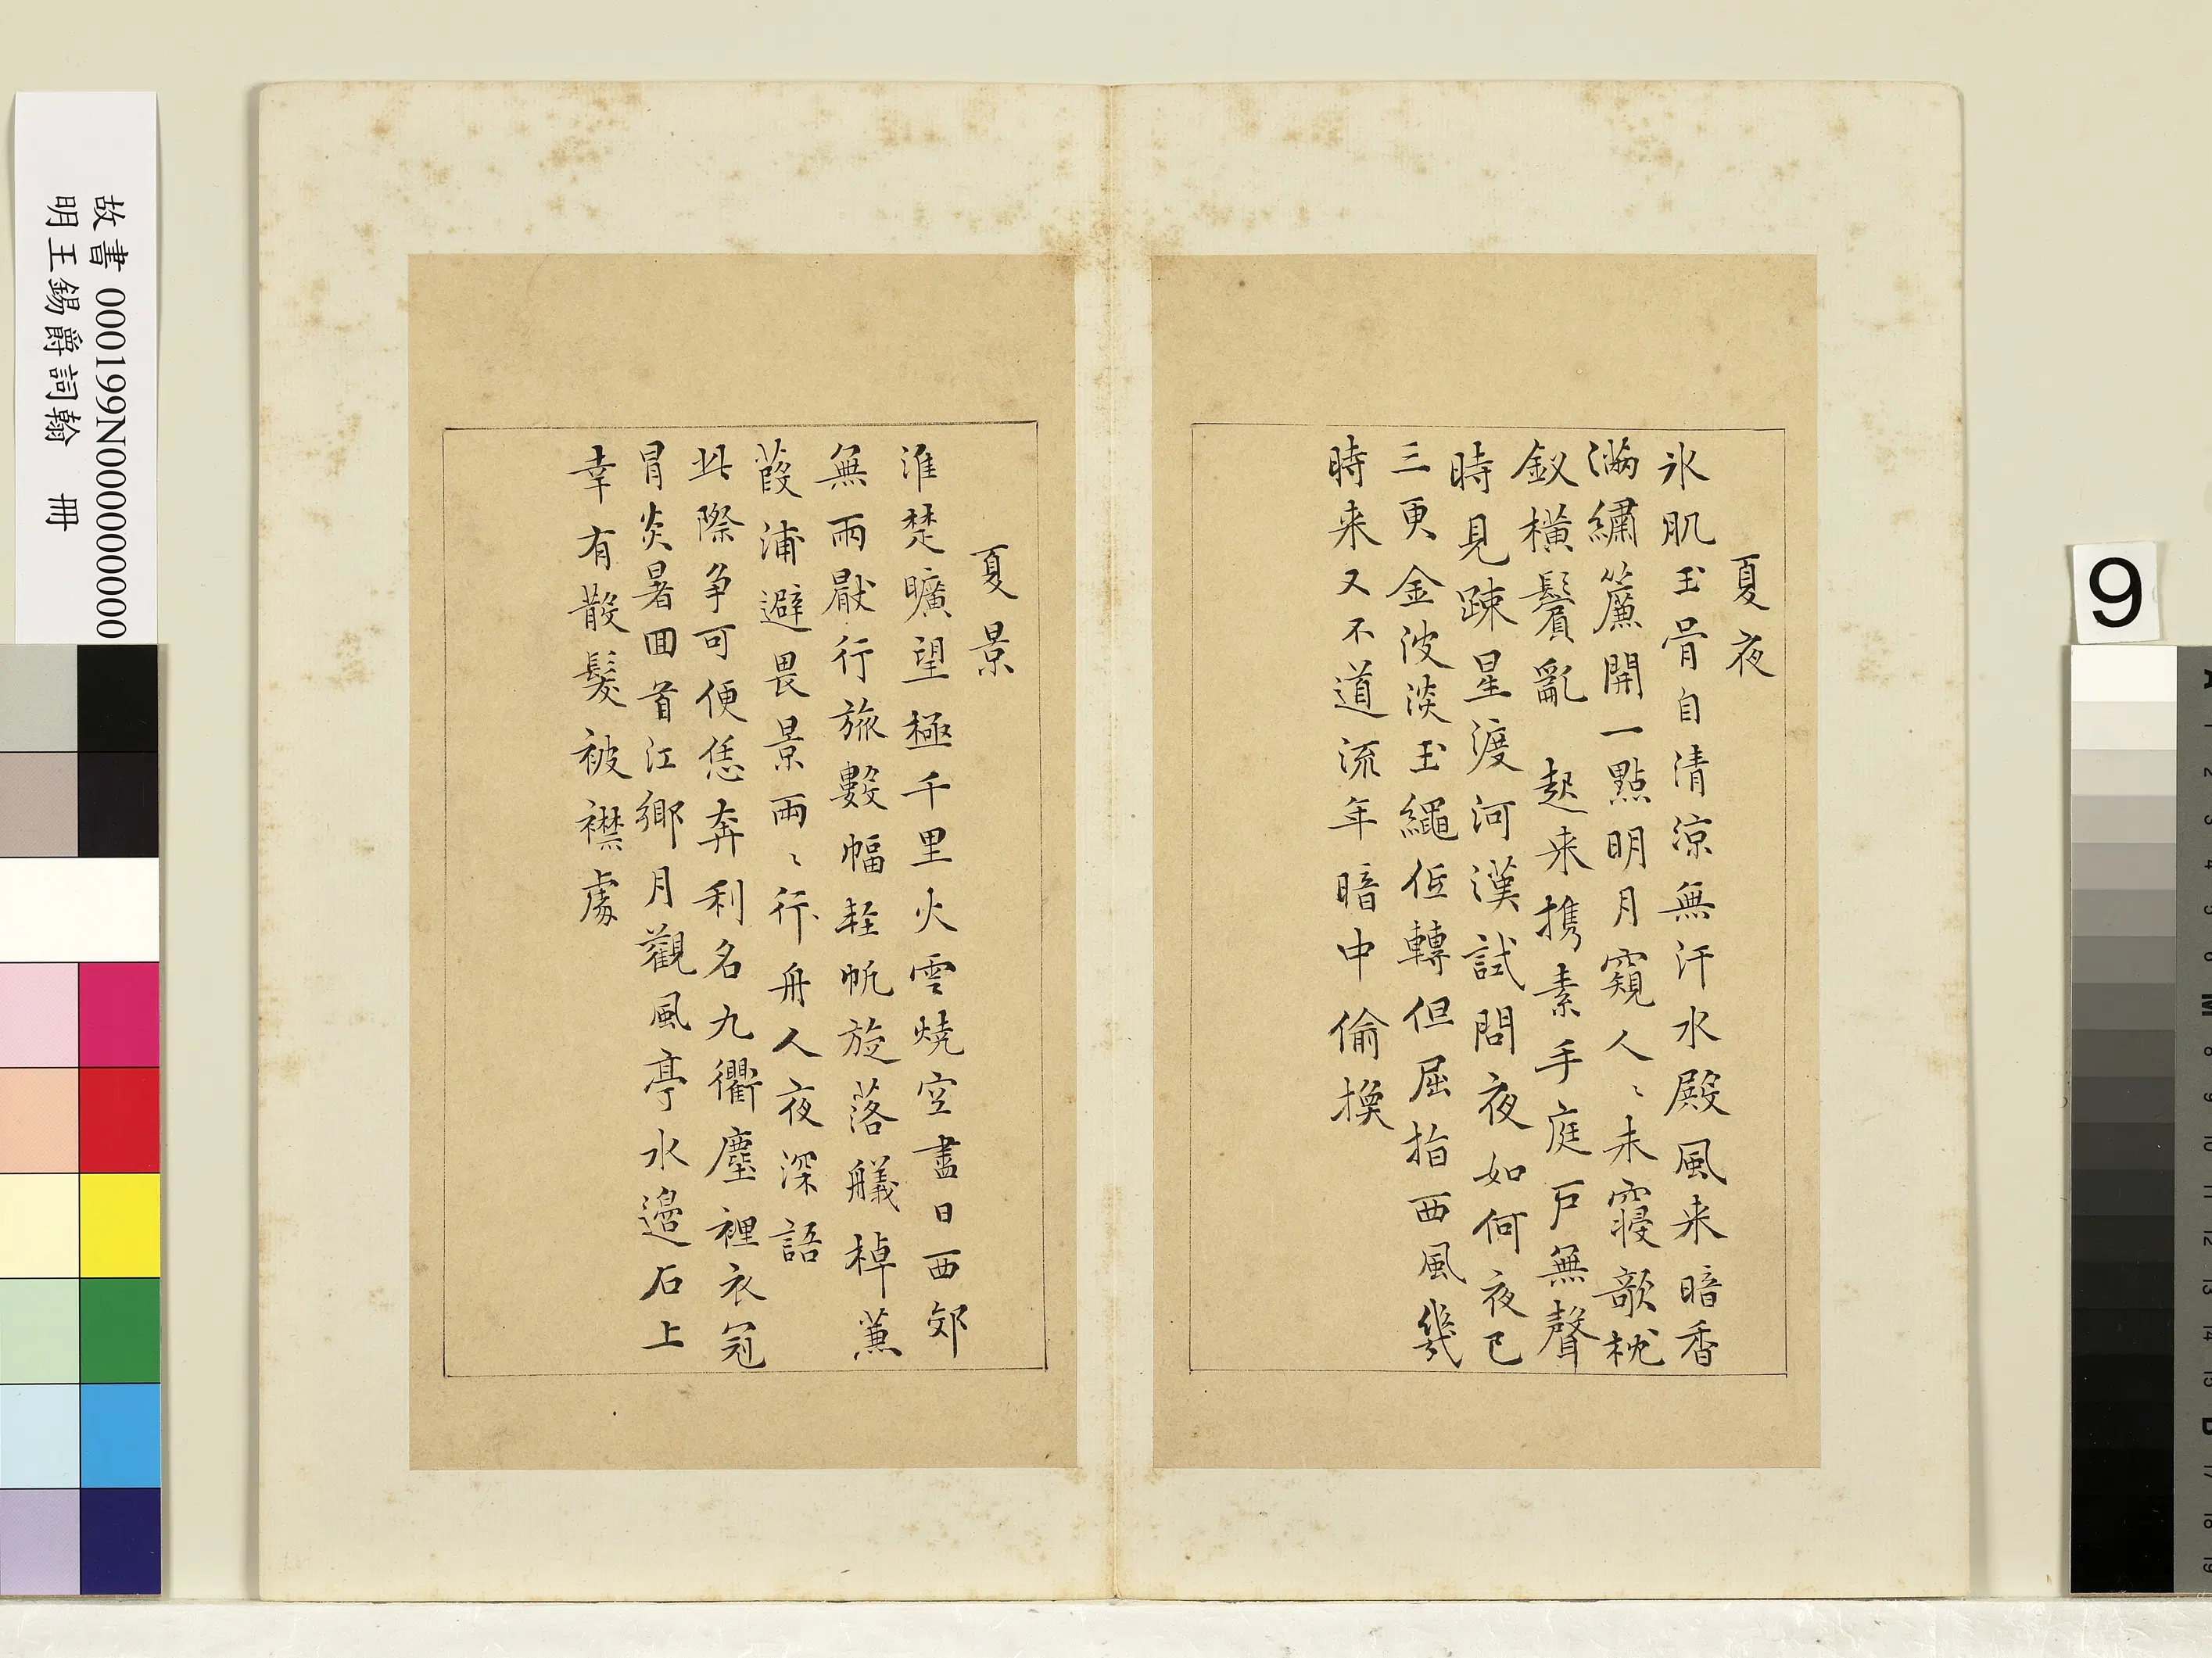 夏夜
氷肌玉骨自清涼無汗水殿風来暗香
滿繡簾開一點明月窺人〻未寢欹枕
釵橫鬢亂 起来携素手庭戶無聲
時見踈星渡河漢試問夜如何夜已
三更金波淡玉繩低轉但屈指西風幾
時来又不道流年暗中偷換
夏景
淮楚曠望極千里火雲燒空盡日西郊
無雨厭行旅數幅輕帆旋落艤棹蒹
葭浦避畏景兩〻行舟人夜深語
此際争可便恁奔利名九衢塵裡衣冠
冒炎暑囬首江鄉月觀風亭水邊石上
幸有散髮被襟處
故書 000199N000000000
明王錫爵詞翰 冊
9